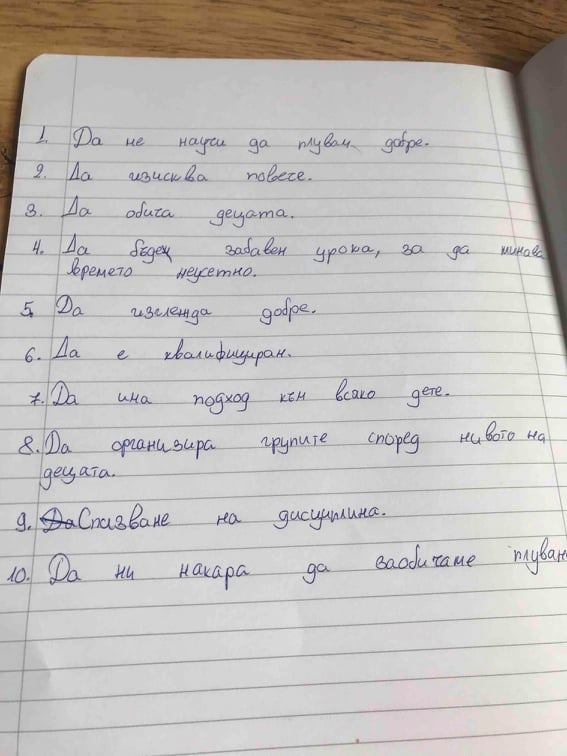 1. Да не научи да плувам добре.
2. Да изисква повече.
3. Да обича децата.
4. Да бъдец забавен урока, за да минава
времето неусетно.
5. Да изглежда добре.
6. Да е квалифициран.
7. Да има подход към всяко дете.
8. Да организира групите според нивото на
децата.
9. Да Спазване на дисциплина.
10. Да ни накара да заобичаме плуван